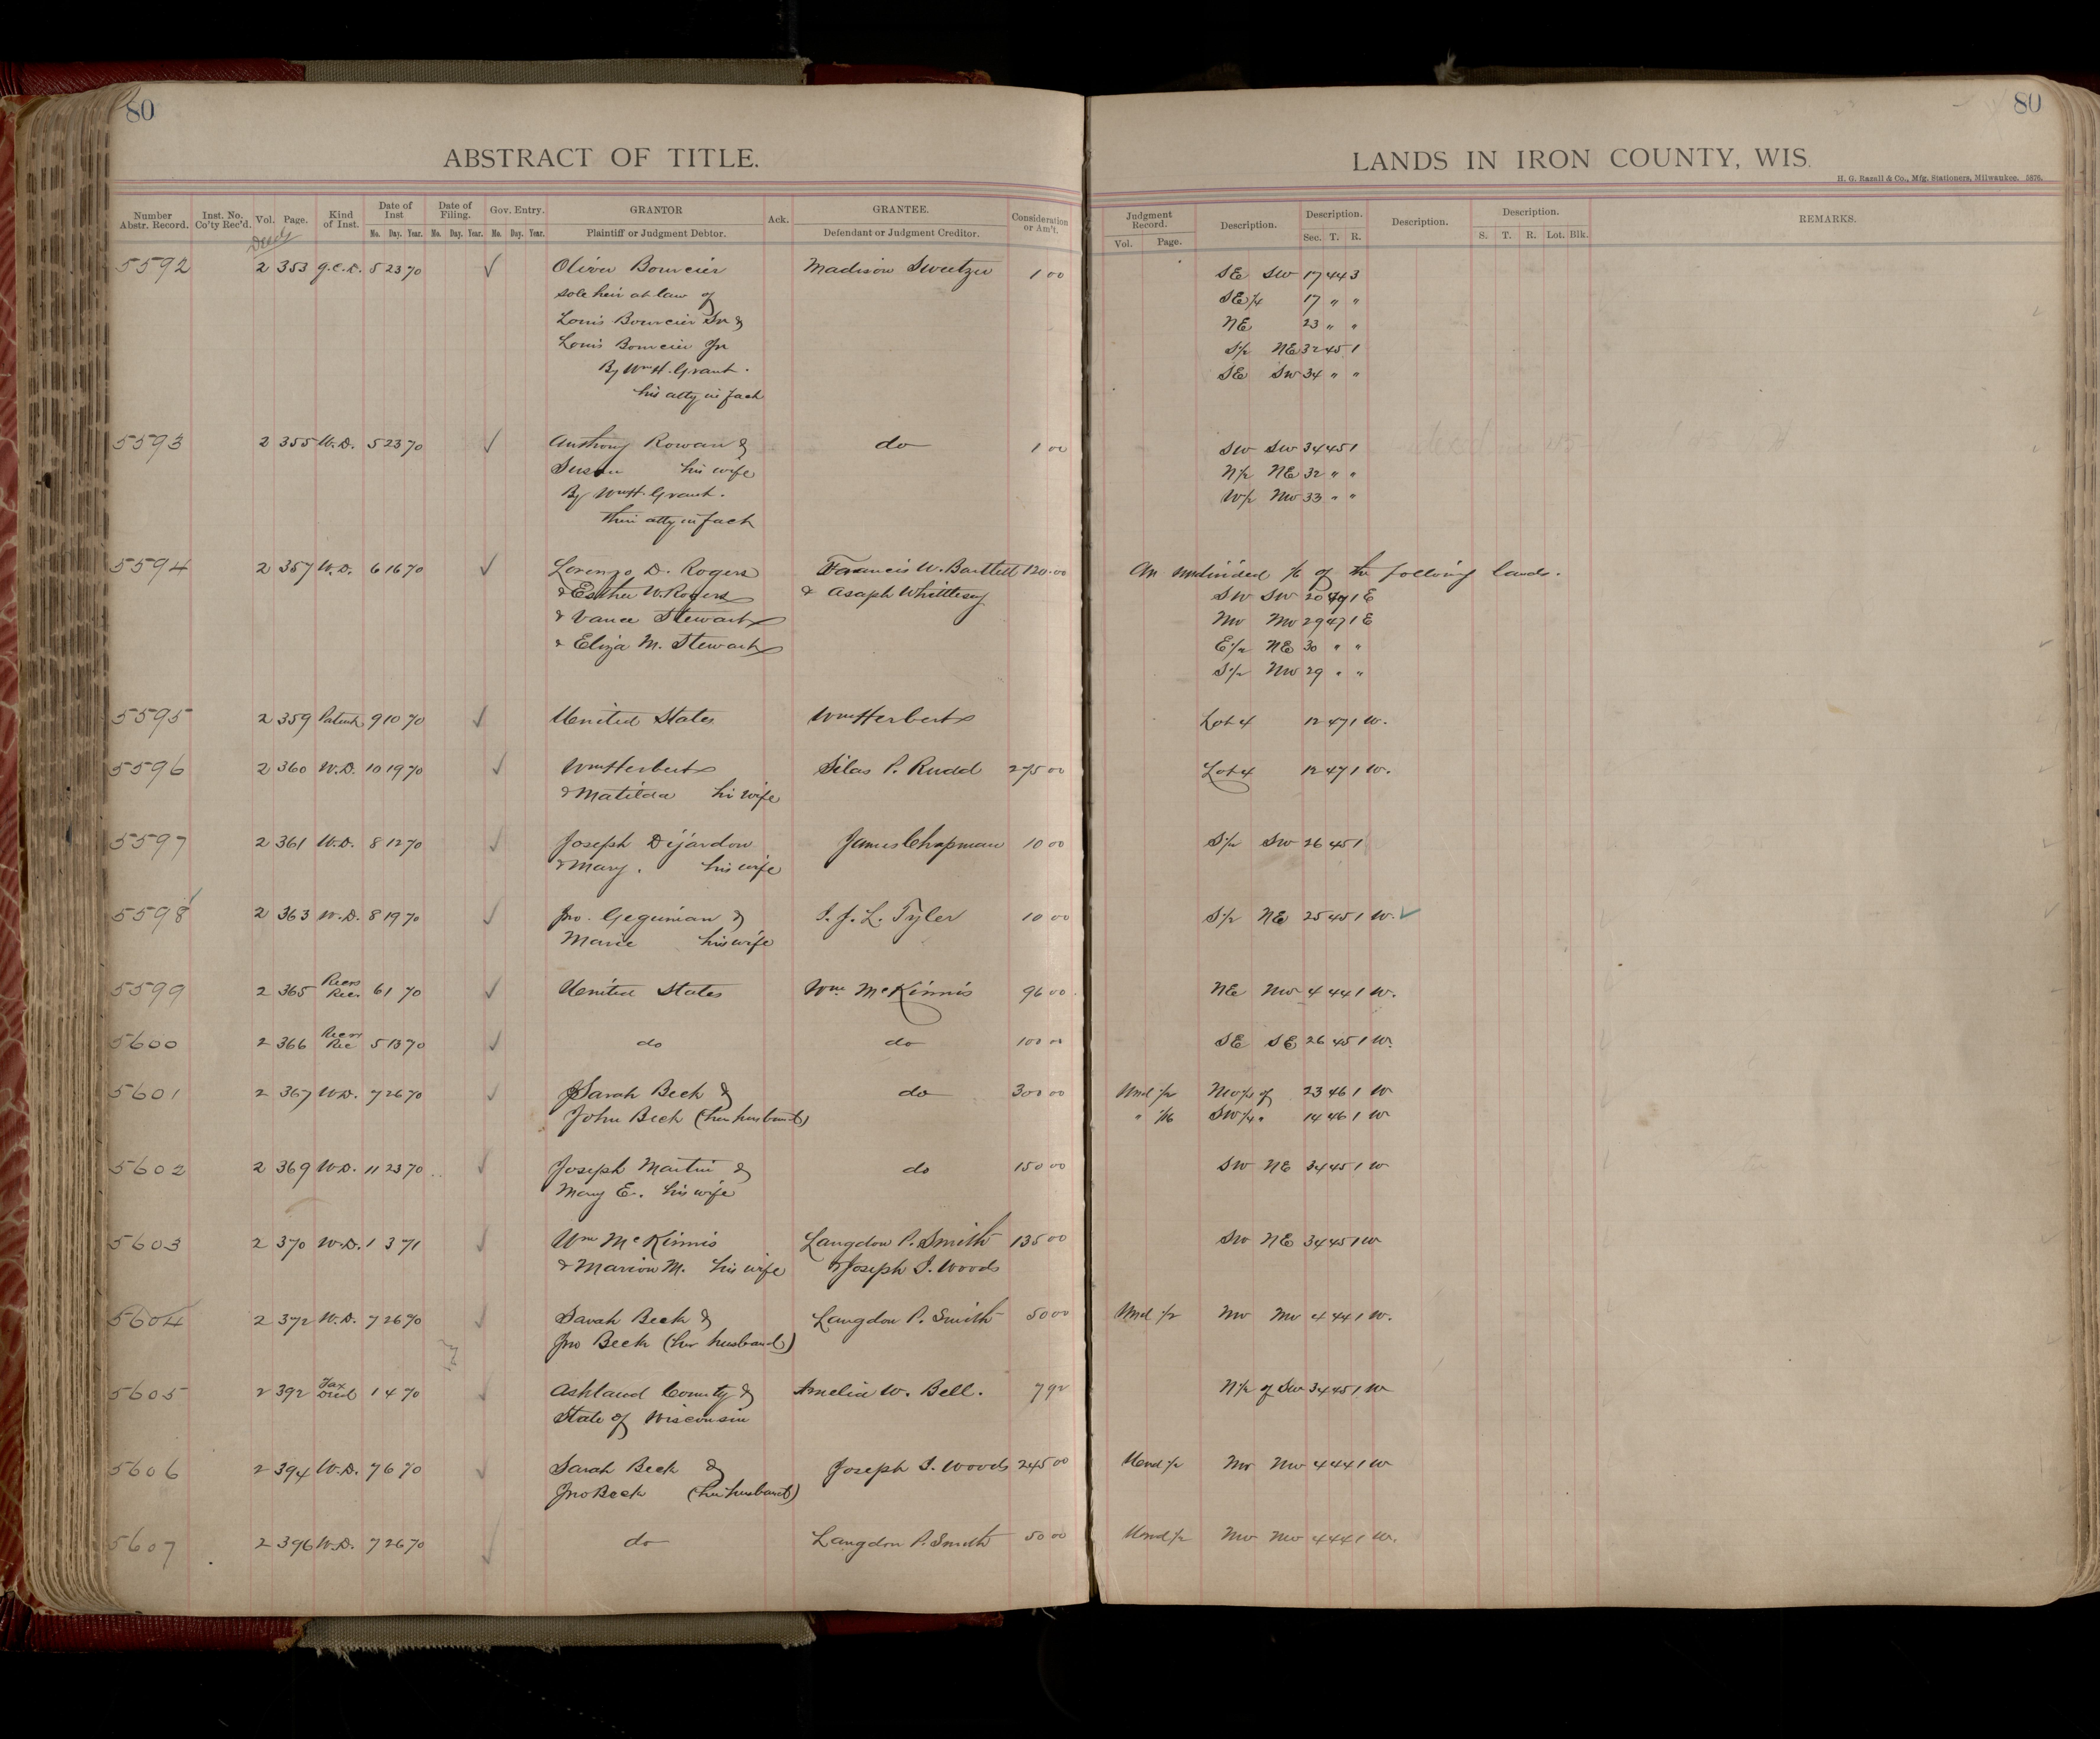 80
80
ABSTRACT OF TITLE.
LANDS IN IRON COUNTY, WIS.
H. G. Razall & Co., Mfg. Stationers, Milwaukee. 5876.
Number Abstr. Record. Inst. No. Co'ty Rec'd. Vol. Page. Kind of Inst. Date of Inst Mo. Day. Year. Date of Filing. Mo. Day. Year. Gov. Entry. Mo. Day. Year. GRANTOR Plaintiff or Judgment Debtor. Ack. GRANTEE. Defendant or Judgment Creditor. Consideration or Am't. Judgment Record. Vol. Page. Description. Description. Sec. T. R. Description. Description. S. T. R. Lot. Blk. REMARKS.
Deeds
5592 2 353 Q.C.D. 5 23 70 ✓ Oliver Bourcier Madison Sweetzer 1 00 SE SW 17 44 3
sole heir at law of SE 1/4 17 " "
Louis Bourcier Sr & NE 23 " "
Louis Bourcier Jr S 1/2 NE 32 45 1
By Wm H. Grant. SE SW 34 " "
his atty in fact
5593 2 355 W.D. 5 23 70 ✓ Anthony Rowan & do 1 00 SW SW 34 45 1
Susan his wife N 1/2 NE 32 " "
By Wm H. Grant. W 1/2 NW 33 " "
their atty in fact
5594 2 357 W.D. 6 16 70 ✓ Lorenzo D. Rogers Francis W. Bartlett 120.00 An undivided 1/6 of the following lands.
& Esther W. Rogers & Asaph Whittlesey SW SW 20 47 1 E
& Vance Stewart NW NW 29 47 1 E
& Eliza M. Stewart E 1/2 NE 30 " "
S 1/2 NW 29 " "
5595 2 359 Patent 9 10 70 ✓ United States Wm Herbert Lot 4 12 47 1 W.
5596 2 360 W.D. 10 19 70 ✓ Wm Herbert Silas P. Rudd 275 00 Lot 4 12 47 1 W.
& Matilda hi wife
5597 2 361 W.D. 8 12 70 ✓ Joseph Dejardon James Chapman 10 00 S 1/2 SW 26 45 1
& Mary. his wife
5598 2 363 W.D. 8 19 70 ✓ Jno. Gegunian & I. J. L. Tyler 10 00 S 1/2 NE 25 45 1 W. ✓
Marie his wife
5599 2 365 Recrs Rec 6 1 70 ✓ United States Wm McKinnis 96 00 NE NW 4 44 1 W.
5600 2 366 Recrs Rec 5 13 70 ✓ do do 100 00 SE SE 26 45 1 W.
5601 2 367 W.D. 7 26 70 ✓ Sarah Beck & do 300 00 Und 1/2 NW 1/4 of 23 46 1 W
John Beck (her husband) " 1/16 SW 1/4 " 14 46 1 W
5602 2 369 W.D. 11 23 70 ✓ Joseph Martin & do 150 00 SW NE 34 45 1 W
Mary E. his wife
5603 2 370 W.D. 1 3 71 ✓ Wm McKinnis Langdon P. Smith 135 00 SW NE 34 45 1 W
& Marion M. his wife & Joseph I. Woods
5604 2 372 W.D. 7 26 70 ✓ Sarah Beck & Langdon P. Smith 50 00 Und 1/2 NW NW 4 44 1 W.
Jno Beck (her husband)
5605 2 392 Tax Deed 1 4 70 ✓ Ashland County & Amelia W. Bell. 7 92 N 1/2 of SW 34 45 1 W
State of Wisconsin
5606 2 394 W.D. 7 6 70 ✓ Sarah Beck & Joseph I. Woods 245 00 Und 1/2 NW NW 4 44 1 W
Jno Beck (her husband)
5607 2 396 W.D. 7 26 70 ✓ do Langdon P. Smith 50 00 Und 1/2 NW NW 4 44 1 W.